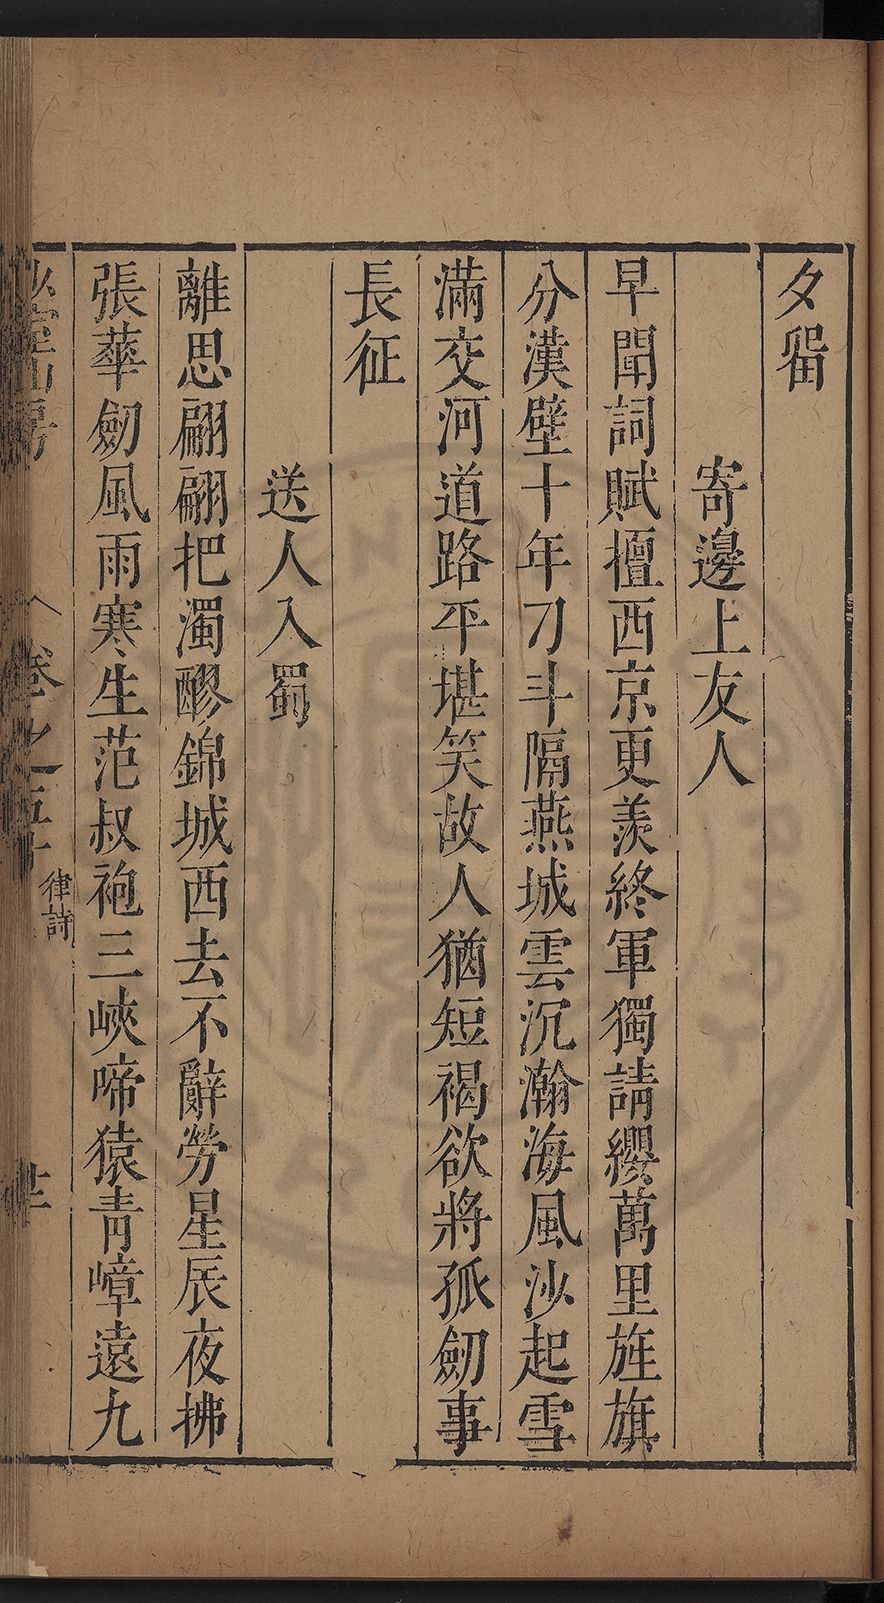 夕留
寄邊上友人
早聞詞賦擅西京更羨終軍獨請纓萬里旌旗
分漢壁十年刀斗隔燕城雲沉瀚海風沙起雪
滿交河道路平堪笑故人猶短褐欲將孤劒事
長征
送人入蜀
離思翩翩把濁醪錦城西去不辭勞星辰夜拂
張華劒風雨寒生范叔袍三峽啼猿青嶂遠九
卷之五十 律詩